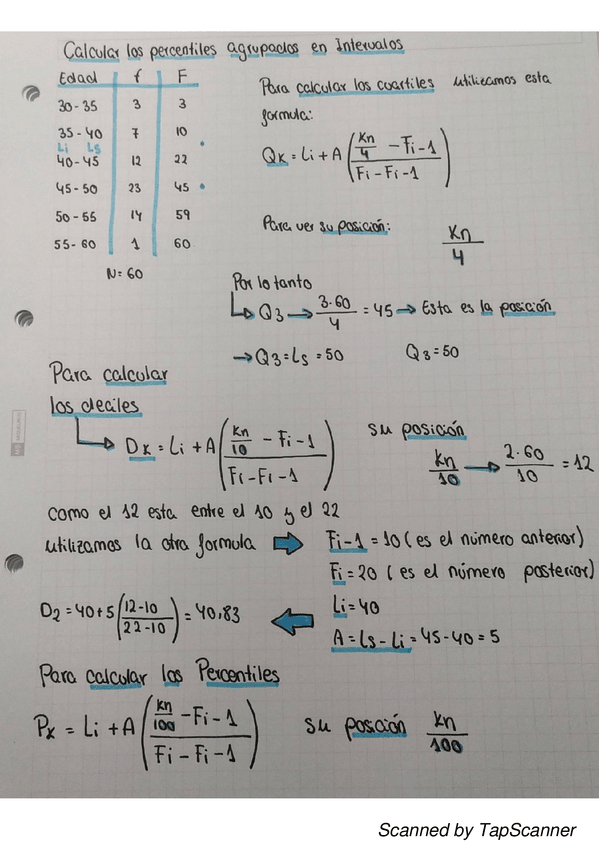 Calcular los percentiles agrupados en Intervalos
Edad f F
30-35 3 3
35-40 7 10
Li Ls
40-45 12 22
45-50 23 45
50-55 14 59
55-60 1 60
N=60
Para calcular los cuartiles utilizamos esta
formula:
Qk = Li + A ( (kn/4 - Fi-1) / (Fi - Fi-1) )
Para ver su posición:
kn/4
Por lo tanto
Q3 → 3·60/4 = 45 → Esta es la posición
→ Q3 = Ls = 50 Q3 = 50
Para calcular
los deciles
Dx = Li + A ( (kn/10 - Fi-1) / (Fi - Fi-1) )
su posición
kn/10 → 2·60/10 = 12
como el 12 esta entre el 10 y el 22
utilizamos la otra formula ⇒ Fi-1 = 10 ( es el número anterior)
Fi = 20 ( es el número posterior)
Li = 40
A = Ls - Li = 45 - 40 = 5
D2 = 40 + 5 ( (12-10) / (22-10) ) = 40,83
Para calcular los Percentiles
Px = Li + A ( (kn/100 - Fi-1) / (Fi - Fi-1) )
su posición kn/100
Scanned by TapScanner